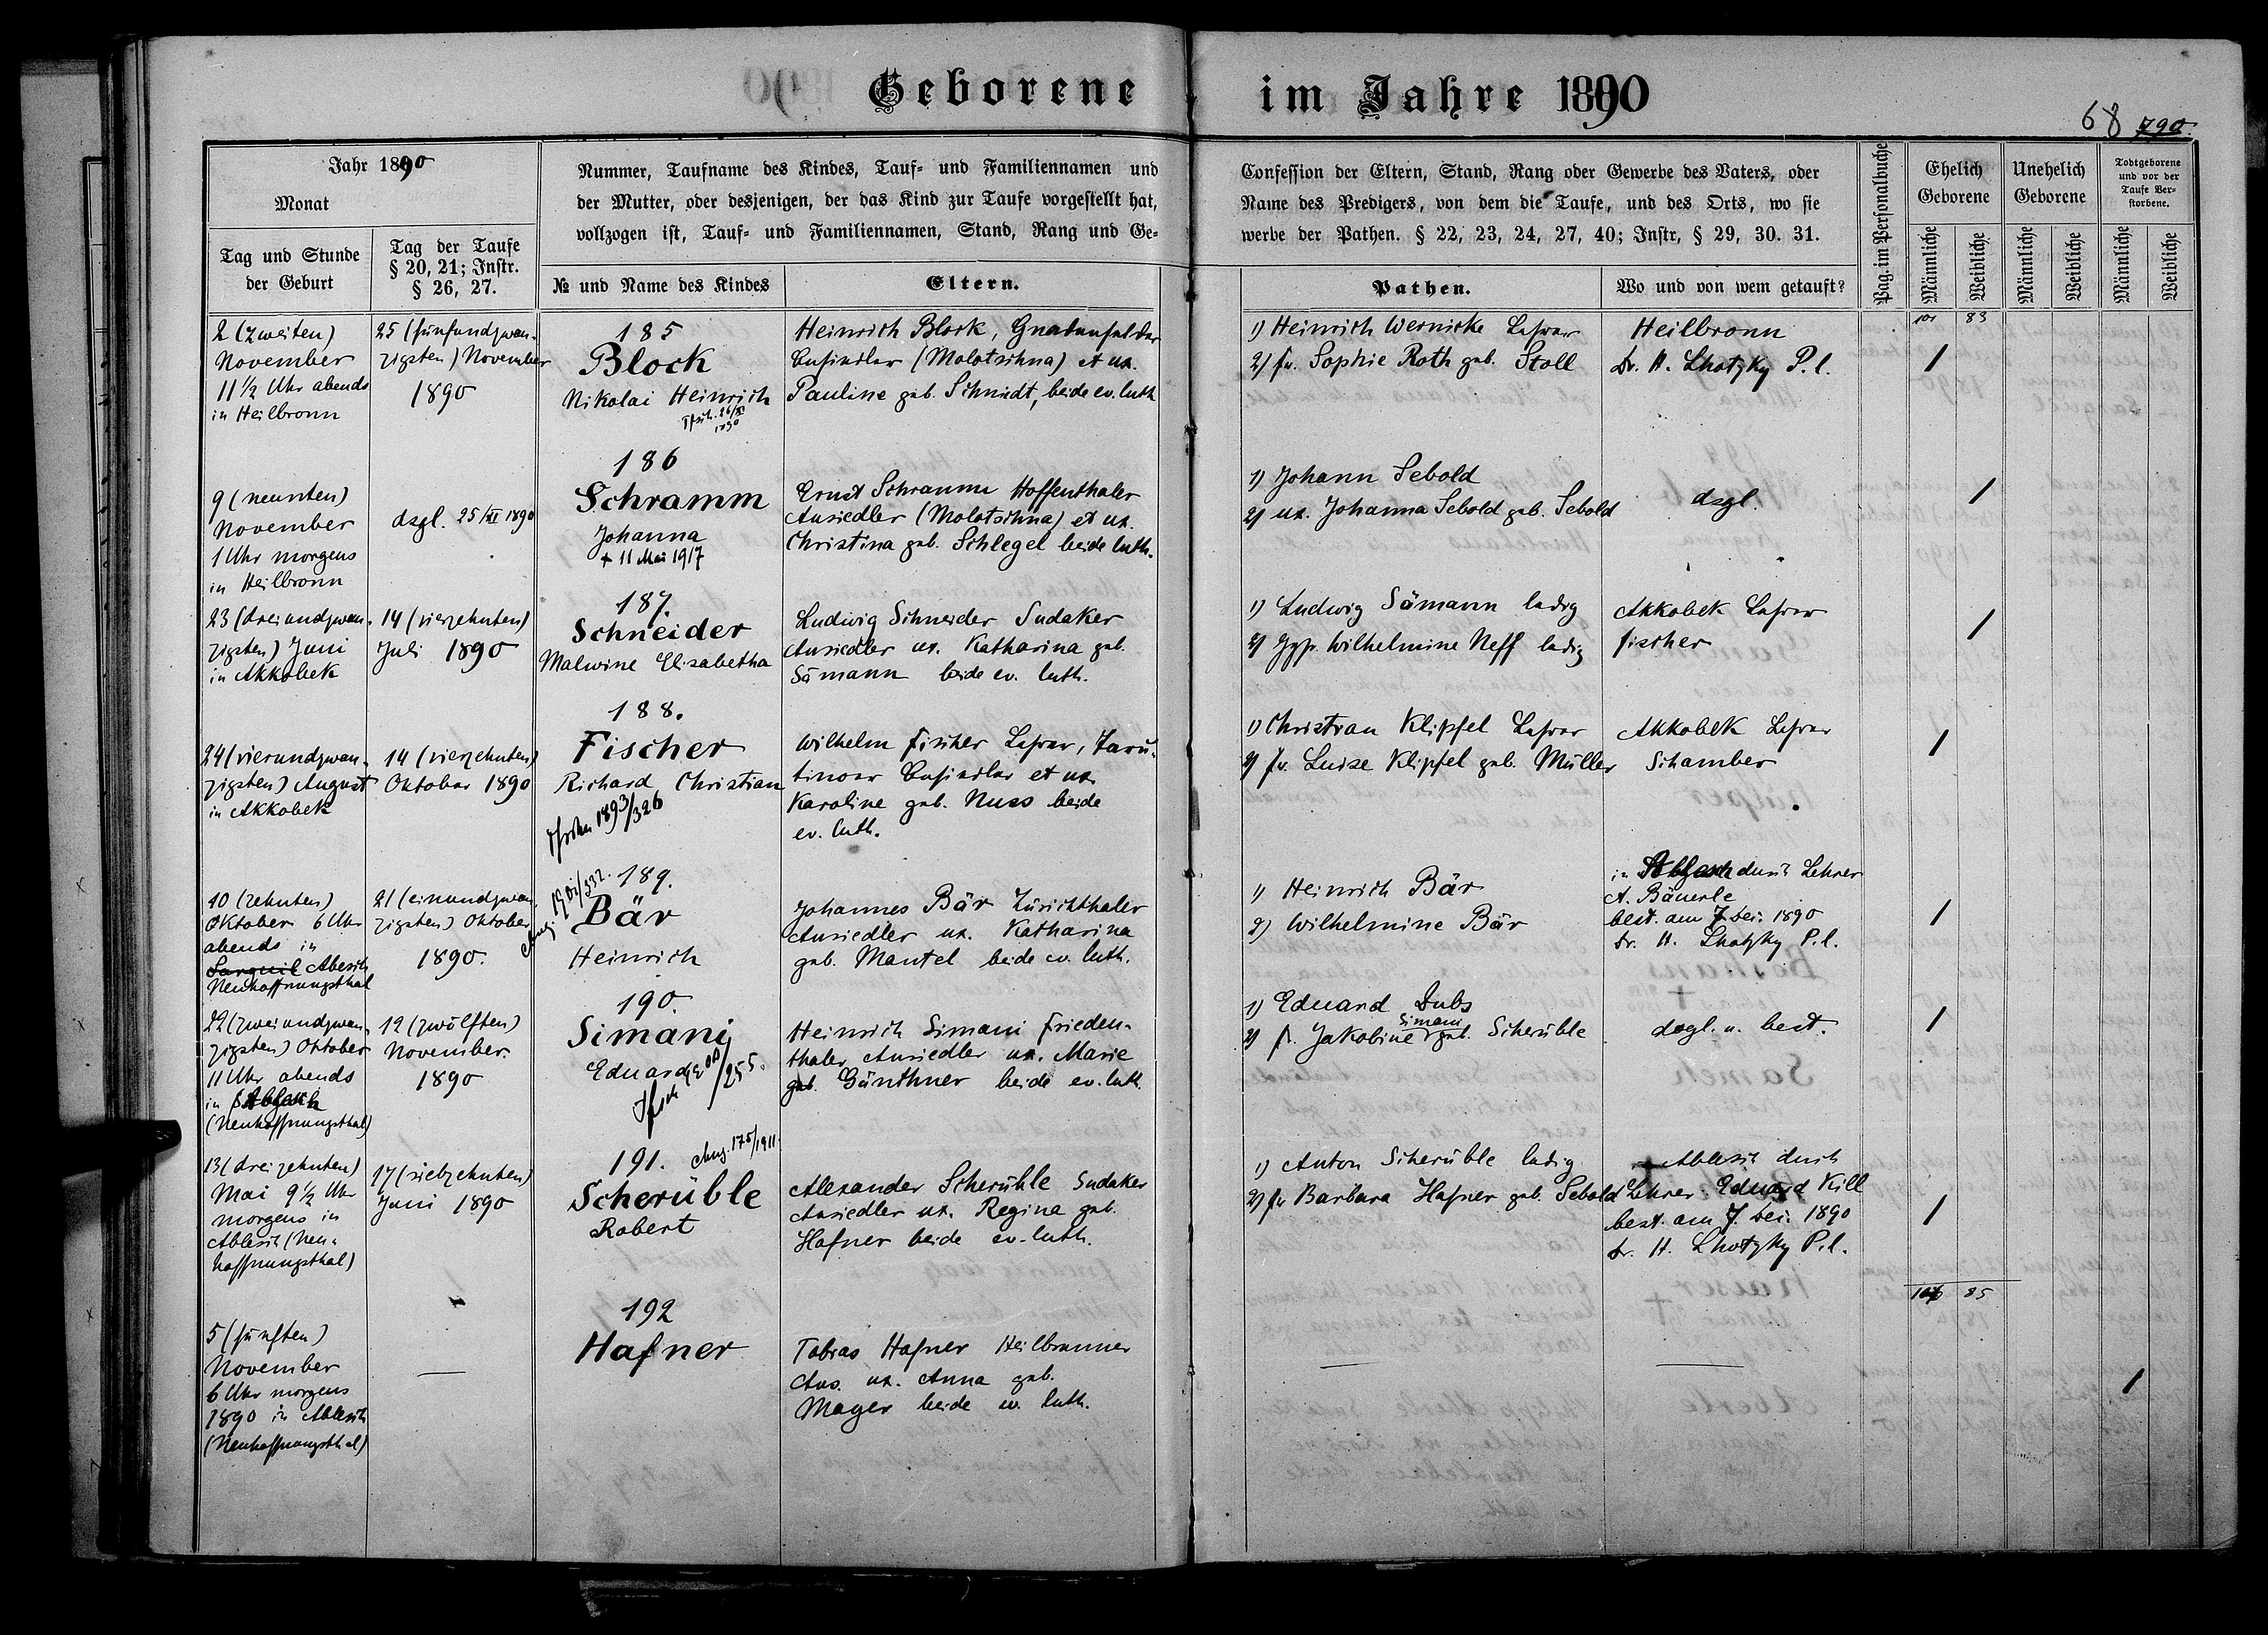 Geborene im Jahre 1890
68 790.
Jahr 1890
Monat
Tag und Stunde
der Geburt
Tag der Taufe
§ 20, 21; Instr.
§ 26, 27.
Nummer, Taufname des Kindes, Tauf- und Familiennamen und
der Mutter, oder desjenigen, der das Kind zur Taufe vorgestellt hat,
vollzogen ist, Tauf- und Familiennamen, Stand, Rang und Ge-
№ und Name des Kindes
Eltern.
Confession der Eltern, Stand, Rang oder Gewerbe des Vaters, oder
Name des Predigers, von dem die Taufe, und des Orts, wo sie
werbe der Pathen. § 22, 23, 24, 27, 40; Instr, § 29, 30. 31.
Pathen.
Wo und von wem getauft?
Pag. im Personalbuche
Ehelich
Geborene
Unehelich
Geborene
Todtgeborene
und vor der
Taufe Ver-
storbene.
Männliche
Weibliche
Männliche
Weibliche
Männliche
Weibliche
101 83
2 (zweiten)
November
11½ Uhr abends
in Heilbronn
25 (fünfundzwan-
zigsten) November
1890
185
Block
Nikolai Heinrich
26/XI
1890
Heinrich Block, Gnadenfelder
Ansiedler (Molotschna) et ux.
Pauline geb. Schmidt, beide ev. luth
1) Heinrich Wernicke Lehrer
2) fr. Sophie Roth geb. Stoll
Heilbronn
Dr. H. Lhotzky P. l.
9 (neunten)
November
1 Uhr morgens
in Heilbronn
dsgl. 25/XI 1890
186
Schramm
Johanna
+ 11 Mai 1917
Ernst Schramm Hoffenthaler
Ansiedler (Molotschna) et ux.
Christina geb. Schlegel beide luth.
1) Johann Sebold
2) ux. Johanna Sebold geb. Sebold
dsgl.
23 (dreiundzwan-
zigsten) Juni
in Akkobek
14 (vierzehnten)
Juli 1890
187.
Schneider
Malwine Elisabetha
Ludwig Schneider Sudaker
Ansiedler ux. Katharina geb.
Sämann beide ev. luth.
1) Ludwig Sämann ledig
2) Jgfr. Wilhelmine Neff ledig
Akkobek Lehrer
Fischer
24 (vierundzwan-
zigsten) August
in Akkobek
14 (vierzehnten)
Oktober 1890
188.
Fischer
Richard Christian
1893/326
Wilhelm Fischer Lehrer, Taru-
tinoer Ansiedler et ux.
Karoline geb. Nuss beide
ev. luth.
1) Christian Klipfel Lehrer
2) fr. Luise Klipfel geb. Müller
Akkobek Lehrer
Schamber
10 (zehnten)
Oktober 6 Uhr
abends in
Sarguil Ablesch
Neuhoffnungsthal
21 (einundzwan-
zigsten) Oktober
1890.
189.
Bär
Heinrich
Johannes Bär Zürichthaler
Ansiedler ux. Katharina
geb. Mantel beide ev. luth.
1) Heinrich Bär
2) Wilhelmine Bär
in Ablesch durch Lehrer
A. Bäuerle
best. am 7. Dec. 1890
Dr. H. Lhotzky P. l.
22 (zweiundzwan-
zigsten) Oktober
11 Uhr abends
in Ablesch
(Neuhoffnungsthal)
12 (zwölften)
November.
1890
190.
Simani
Eduard
Heinrich Simani Frieden-
thaler Ansiedler ux. Marie
geb. Günthner beide ev. luth.
1) Eduard Dubs
2) fr. Jakobine Simani geb. Scherüble
dsgl. u. best.
13 (dreizehnten)
Mai 9½ Uhr
morgens in
Ablesch (Neu-
hoffnungsthal)
17 (siebzehnten)
Juni 1890
191.
175/1911.
Scherüble
Robert
Alexander Scherüble Sudaker
Ansiedler ux. Regina geb.
Hafner beide ev. luth.
1) Anton Scherüble ledig
2) fr. Barbara Hafner geb. Sebold
Ablesch durch
Lehrer Eduard Kill
best. am 7. Dec. 1890
Dr. H. Lhotzky P. l.
106 85
5 (fünften)
November
6 Uhr morgens
1890 in Ablesch
(Neuhoffnungsthal)
192
Hafner
Tobias Hafner Heilbrunner
Ans. ux. Anna geb.
Mayer beide ev. luth.